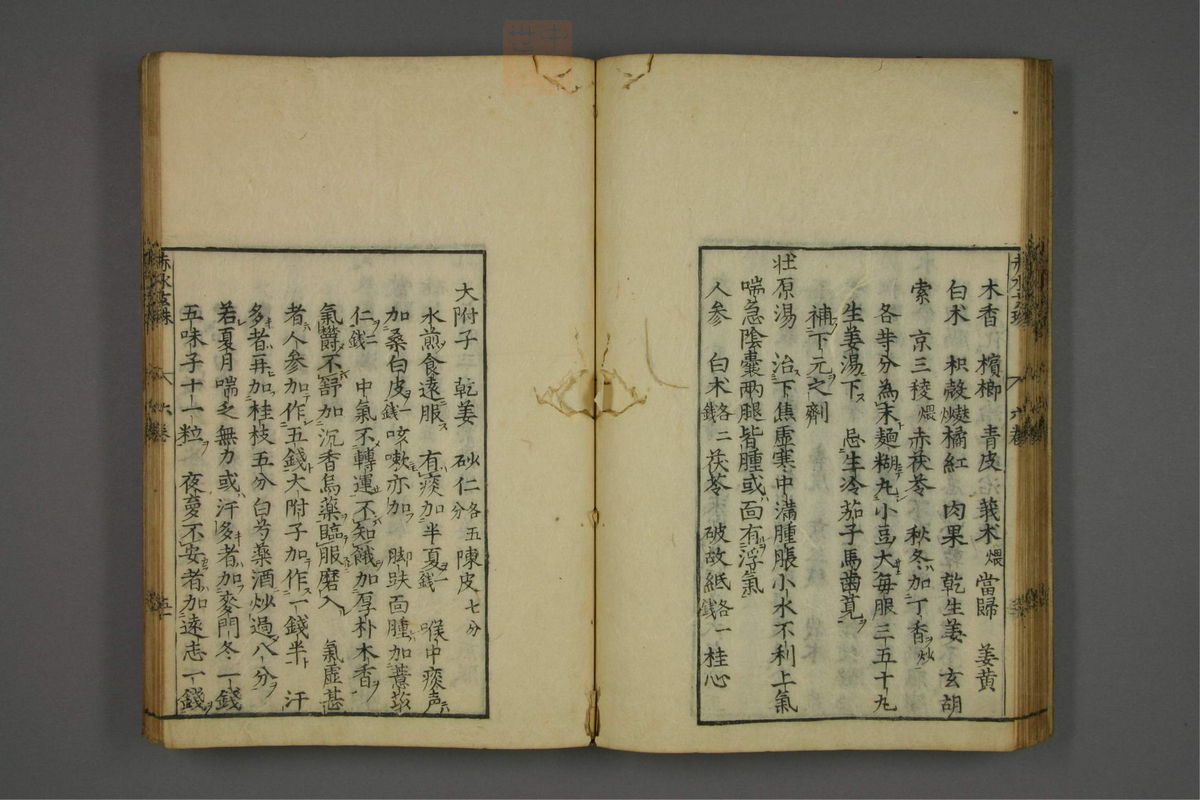 木香 檳榔 青皮 莪朮煨 當歸 姜黃
白朮 枳殼 橘紅 肉果 乾生姜 玄胡
索 京三稜煨 赤茯苓 秋冬加丁香炒
各等分為末麵糊丸小豆大每服三五十丸
生姜湯下 忌生冷茄子馬齒莧
補下元之劑
壯原湯 治下焦虛寒中滿腫脹小水不利上氣
喘急陰囊兩腿皆腫或面有浮氣
人參 白朮各二錢 茯苓 破故紙各一錢 桂心
大附子 乾姜 砂仁各五分 陳皮七分
水煎食遠服 有痰加半夏一錢 喉中痰声
加桑白皮一錢 咳嗽亦加 脚趺面腫加薏苡
仁二錢 中氣不轉運不知餓加厚朴木香
氣欝不舒加沉香烏藥臨服磨入 氣虛甚
者人參加作五錢大附子加作一錢半 汗
多者再加桂枝五分白芍藥酒炒過八分
若夏月喘乏無力或汗多者加麥門冬一錢
五味子十一粒 夜夢不安者加遠志一錢
赤水玄珠 六卷